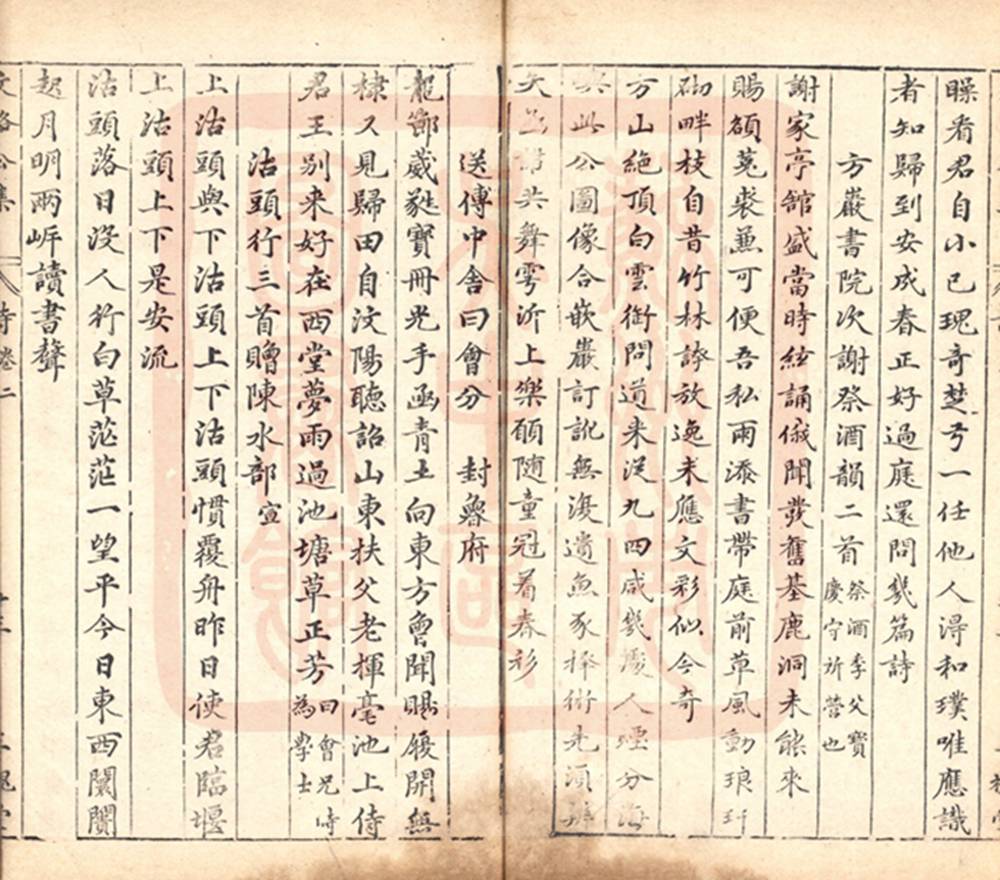 矂看君自小已瑰奇楚兮一任他人淂和璞唯應識
者知歸到安成春正好過庭還問幾篇詩
方巖書院次謝祭酒韻二首祭酒季父寶慶守所營也
謝家亭舘盛當時絃誦俄聞發舊基鹿洞未能來
賜額菟裘兼可便吾私雨添書帶庭前草風動琅玕
砌畔枝自昔竹林誇放逸未應文彩似今奇
方山絶頂白雲衙問道来從九四咸幾處人烟分海
此公圖像合嵌巖訂訛無復遺魚豕捧衘先須
共舞雩沂上樂願随童冠着春衫
送傅中舎曰會分封魯府
龍節葳蕤寳冊光手函青土向東方會聞賜履開無
棣又見歸田自汶陽聽詔山東扶父老揮毫池上侍
君王别来好在西堂夢雨過池塘草正芳曰會兄時為學士
沽頭行三首贈陳水部宣
上沽頭與下沽頭上下沽頭慣覆舟昨日使君臨堰
上沽頭上下是安流
沽頭落日没人行白草茫茫一望平今日東西闤闠
起月明兩岸讀書聲
文 公集 詩卷二